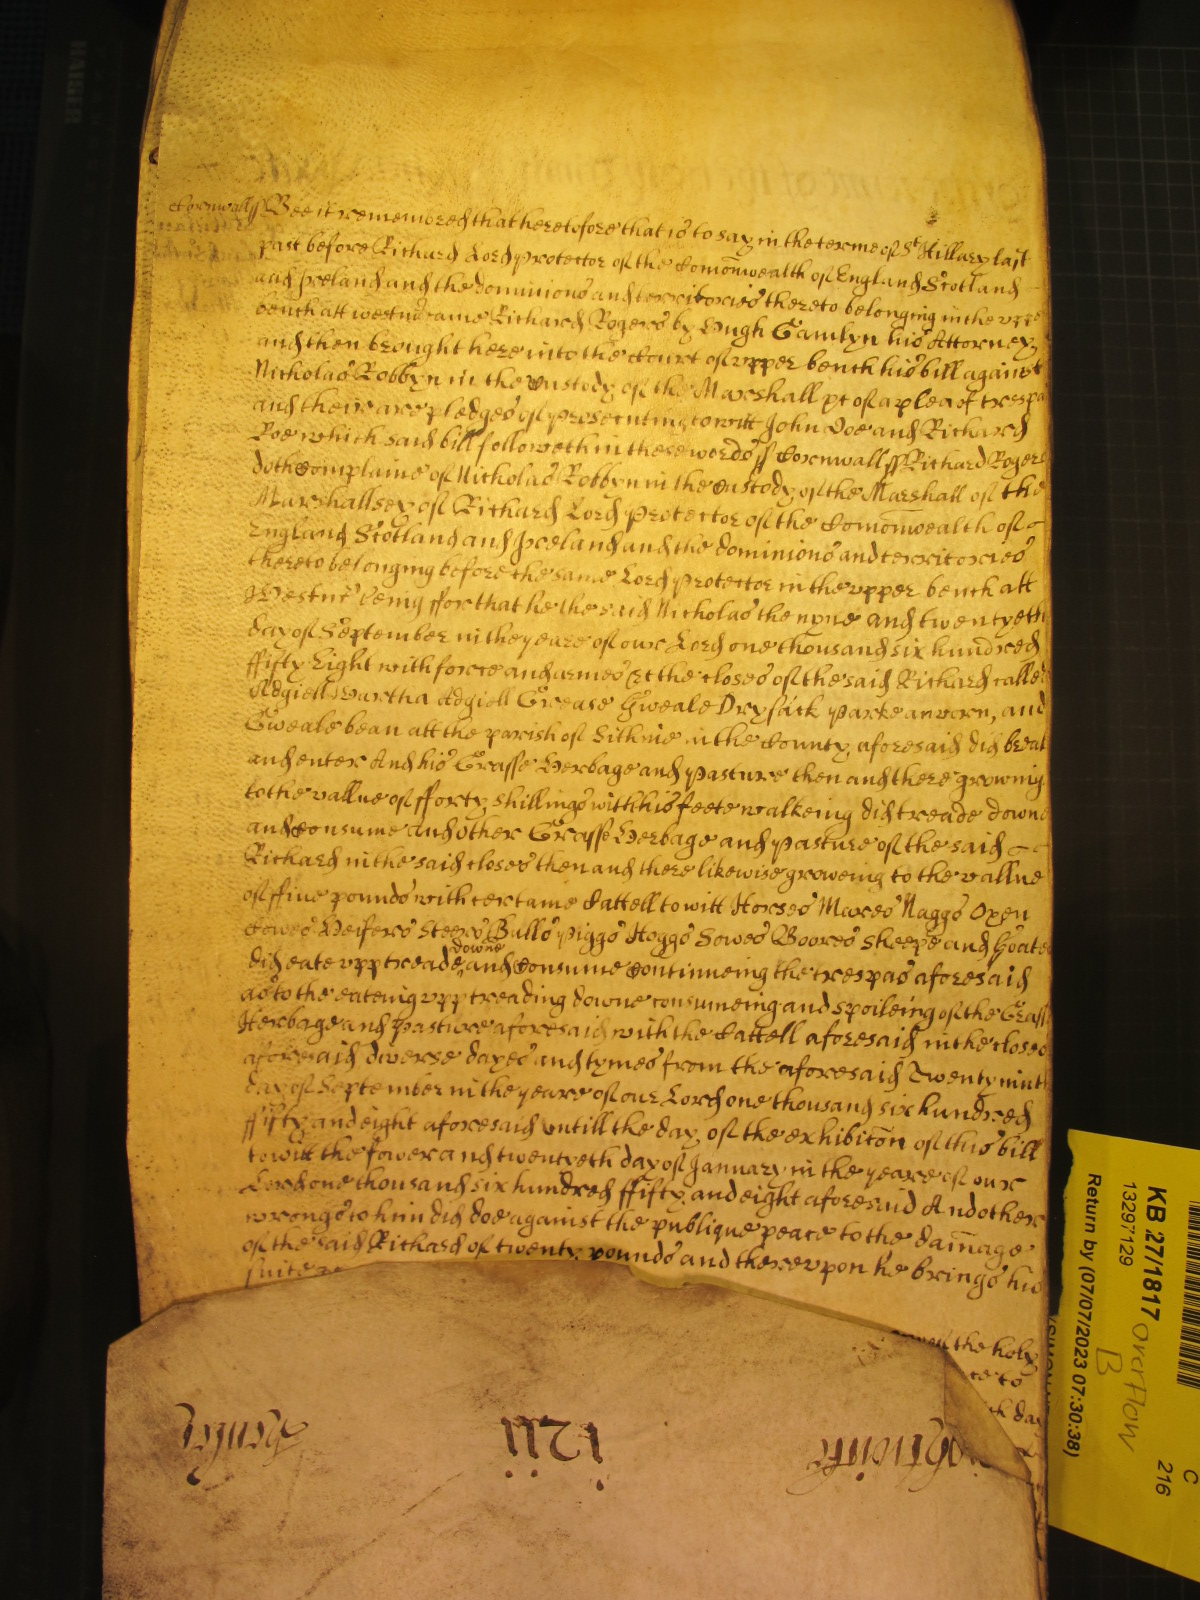 Cornwall ss Bee it remembred that heretofore that is to say in the terme of St Hillary last
past before Richard Lord Protector of the Comonwealth of England Scotland
and Ireland and the dominions and territories thereto belonging in the uppe
bench att Westmr came Richard Rogers by Hugh Gamlyn his Attorney
and then brought here into the Court of upper bench his bill against
Nicholas Robbyn in the Custody of the Marshall &c of a plea of trespa
and their are pledges of prosecuting towitt John Doe and Richard
Roe which said bill followeth in these words ss Cornwall ss Richard Rogers
doth Complaine of Nicholas Robbyn in the Custody of the Marshall of the
Marshallsey of Richard Lord Protector of the Comonwealth of
England Scotland and Ireland and the dominions and territories
thereto belonging before the same Lord Protector in the upper bench att
Westmr being ffor that he the said Nicholas the nyne and twentyeth
day of September in the yeare of our Lord one thousand six hundred
ffifty Eight with force and armes &c the closes of the said Richard called
Adgiell Wartha Adgiell Grease Gweale Drysack Parke an vorn, and
Gweale bean att the parish of Sithnie in the County aforesaid did breat
and enter And his Grasse Herbage and pasture then and there growing
to the vallue of fforty shillings with his feete walkeing did treade downe
and Consume and other Grasse Herbage and Pasture of the said
Richard in the said closes then and there likewise groweing to the vallue
of ffive pounds with certaine Cattell to witt Horses Mares Naggs Oxen
Cowes Heifers Steers Bulls Piggs Hoggs Sowes Boores Sheepe and Goates
did eate upp treade downe and Consume Continueing the trespas aforesaid
as to the eateing upp treading downe consumeing and spoileing of the Grasse
Herbage and Pasture aforesaid with the Cattell aforesaid in the closes
aforesaid diverse dayes and tymes from the aforesaid Twentynint
day of September in the yeare of our Lord one thousand six hundred
ffifty and eight aforesaid untill the day of the exhibicon of this bill
to witt the fower and twentyeth day of January in the yeare of our
Lord one thousand six hundred ffifty and eight aforesaid And other
wrongs to him did doe against the publique peace to the damage
of the said Richard of twenty pounds and thereupon he brings his
suite
the holy
te to
day
KB 27/1817
13297129
Return by (07/07/2023 07:30:38)
overflow
B
C
216
KAISER